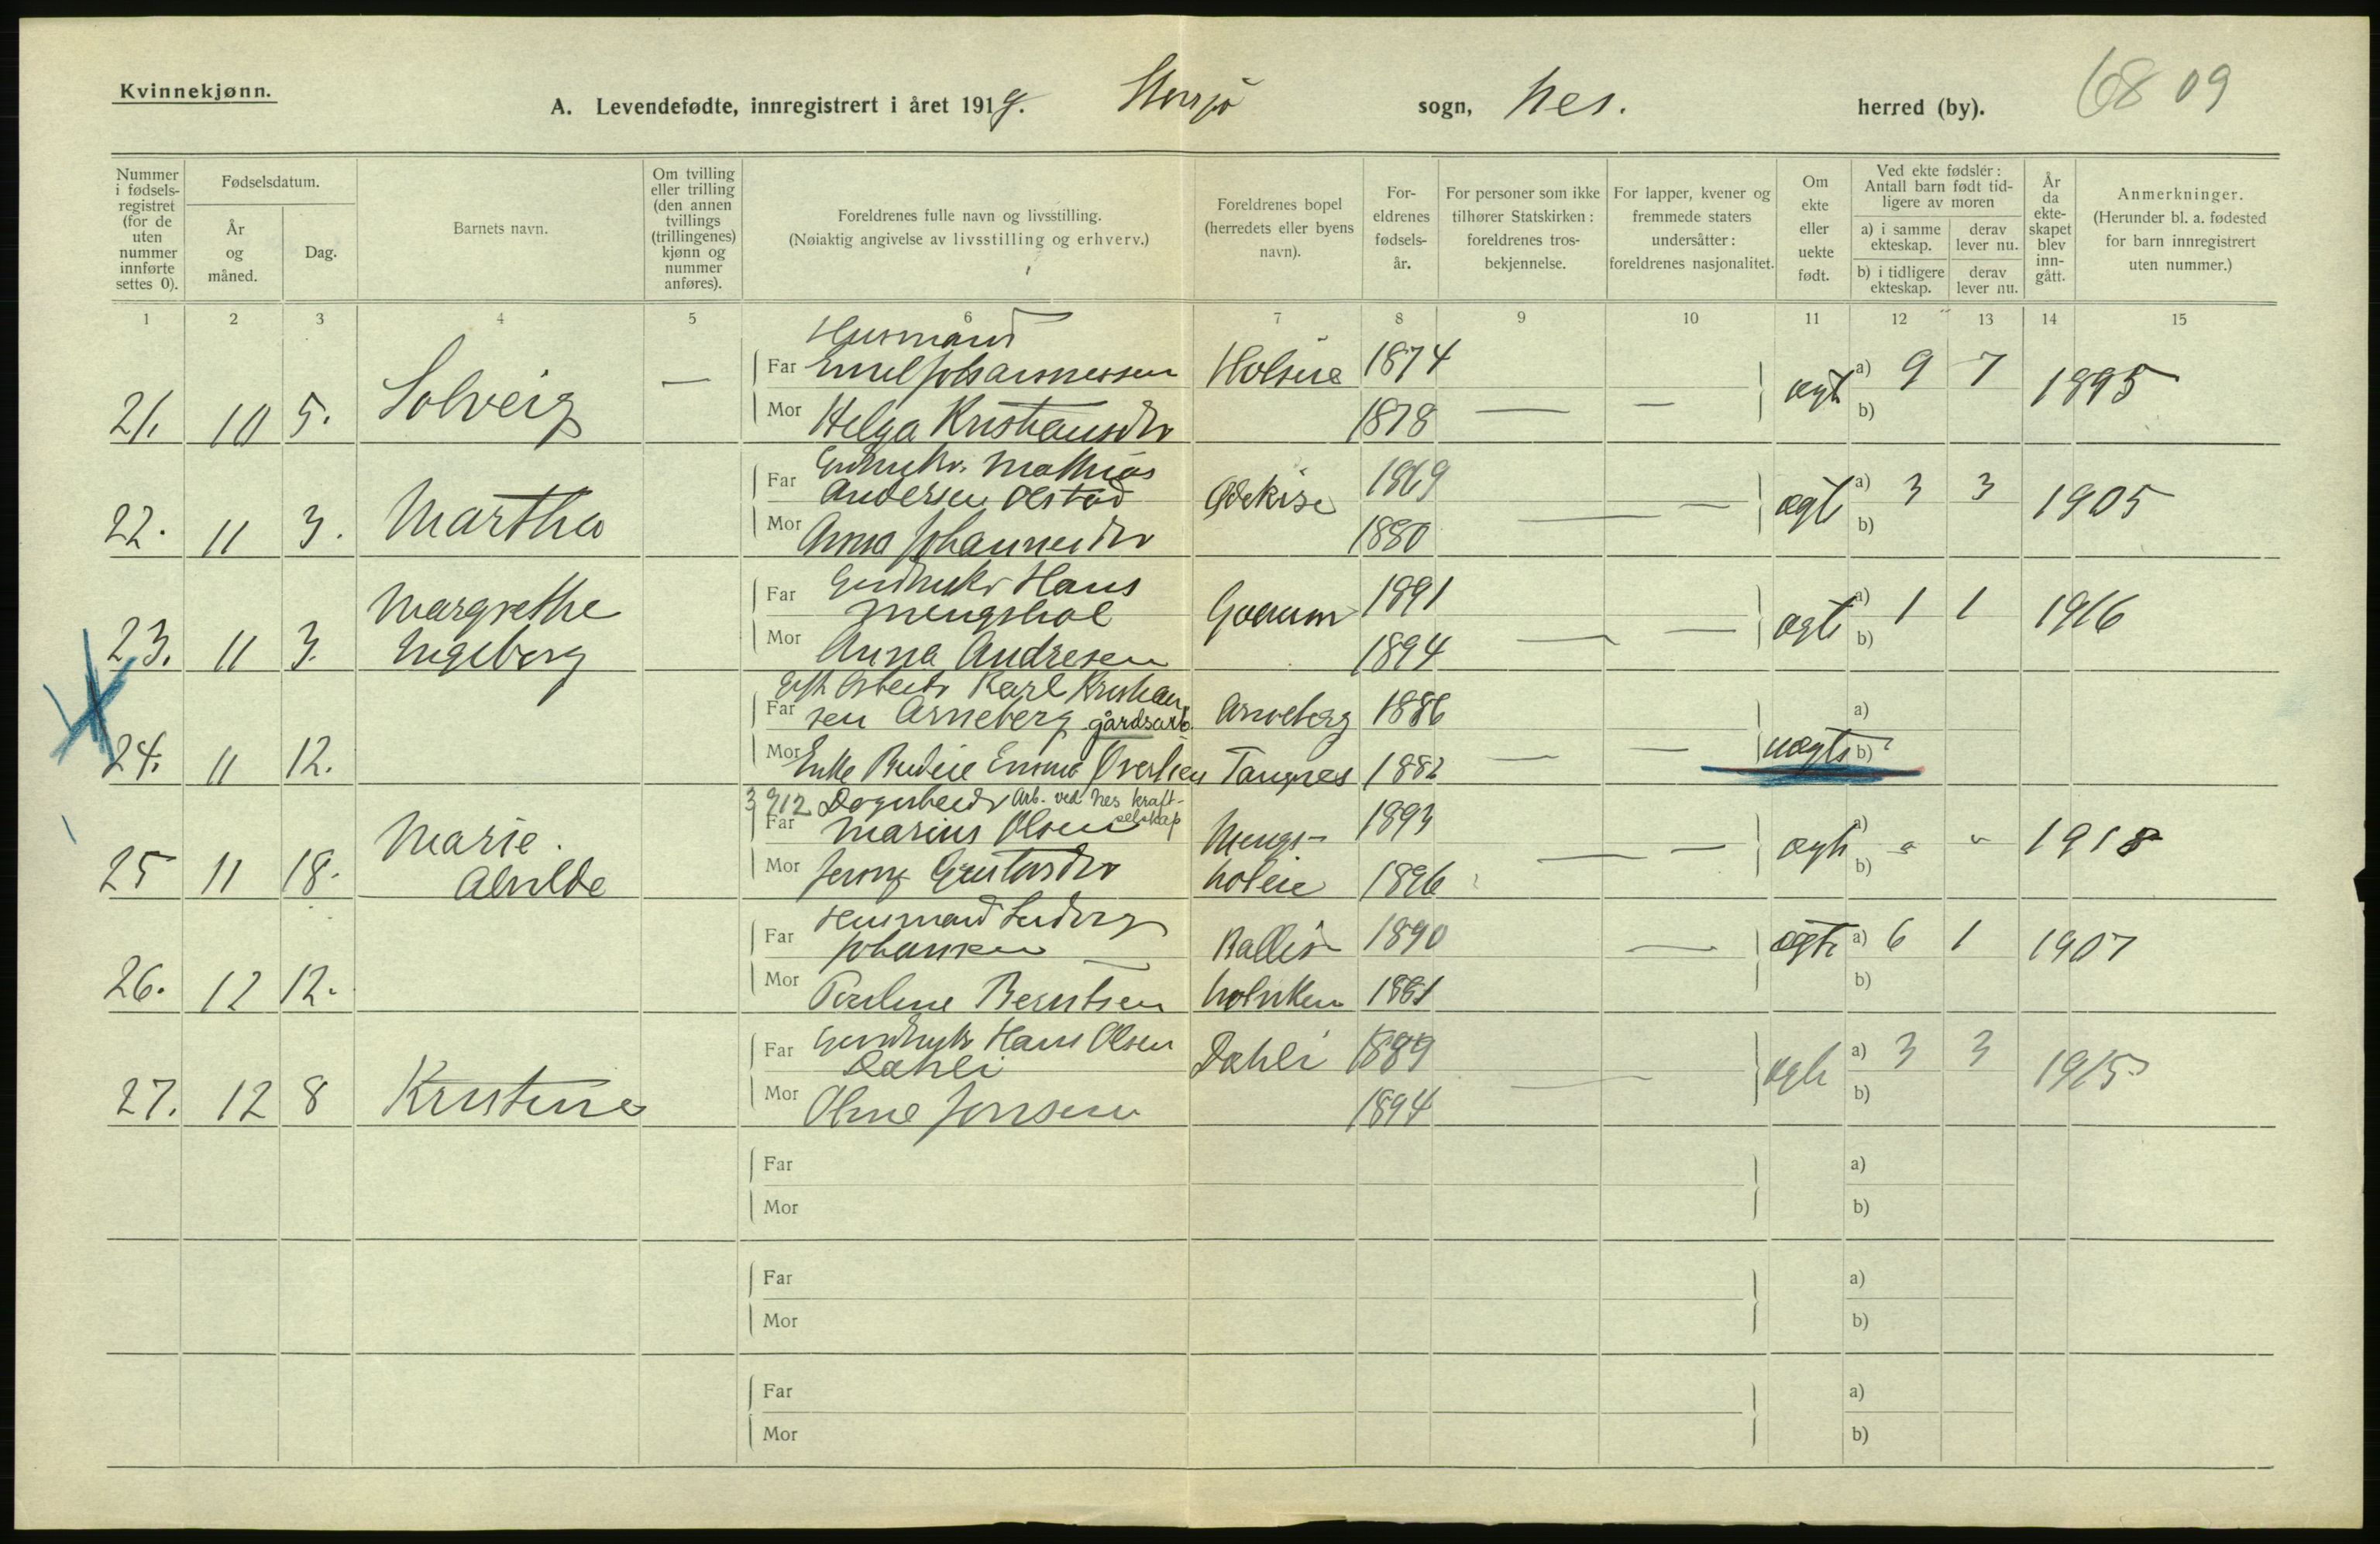 Kvinnekjønn.
A. Levendefødte, innregistrert i året 1919. Storsjø sogn, Nes. herred (by). 6809
Nummer i fødselsregistret (for de uten nummer innførte settes 0).
Fødselsdatum.
År og måned.
Dag.
Barnets navn.
Om tvilling eller trilling (den annen tvillings (trillingenes) kjønn og nummer anføres).
Foreldrenes fulle navn og livsstilling.
(Nøiaktig angivelse av livsstilling og erhverv.)
Foreldrenes bopel (herredets eller byens navn).
Foreldrenes fødselsår.
For personer som ikke tilhører Statskirken: foreldrenes trosbekjennelse.
For lapper, kvener og fremmede staters undersåtter: foreldrenes nasjonalitet.
Om ekte eller uekte født.
Ved ekte fødsler: Antall barn født tidligere av moren
a) i samme ekteskap.
derav lever nu.
b) i tidligere ekteskap.
derav lever nu.
År da ekteskapet blev inngått.
Anmerkninger.
(Herunder bl. a. fødested for barn innregistrert uten nummer.)
1 2 3 4 5 6 7 8 9 10 11 12 13 14 15
Husmand
Far Emil Johannessen 1874 a) 9 7
21. 10 5. Solveig — Mor Helga Kristiansdtr 1878 — — ægte b) 1895
Grdbrukr. Mathias
Far Andersen Olstad 1869 a) 3 3
22. 11 3. Martha Mor Anna Johannesdtr 1880 — — ægte b) 1905
Far Gardbrukr Hans
Mengshol 1891 a) 1 1
23. 11 3. Margrethe Ingeborg Mor Anna Andresen 1894 — — ægte b) 1916
Karl Kristian
Far sen Arneberg gårdsarb. Arneberg 1886 a)
24. 11 12. Mor Enke Budeie Emma Tangnes 1882 — — uægte b)
3912 Dagarbeidr Arb. ved Nes kraft-
selskap
Far Marius Olsen Mengs- 1893 a) " "
25 11 18. Marie Alvilde Mor Jenny Gustavsdtr holeie 1896 — — ægte b) 1918
Husmand Ludvig
Far Johansen 1890 a) 6 1
26. 12 12. Mor Pauline Berntsen 1881 — ægte b) 1907
Gardbrukr Hans Olsen
Far Dahli Dahli 1889 a) 3 3
27. 12 8 Kristine Mor Oline Jonsen 1894 — — ægte b) 1915
Far a)
Mor b)
Far a)
Mor b)
Far a)
Mor b)